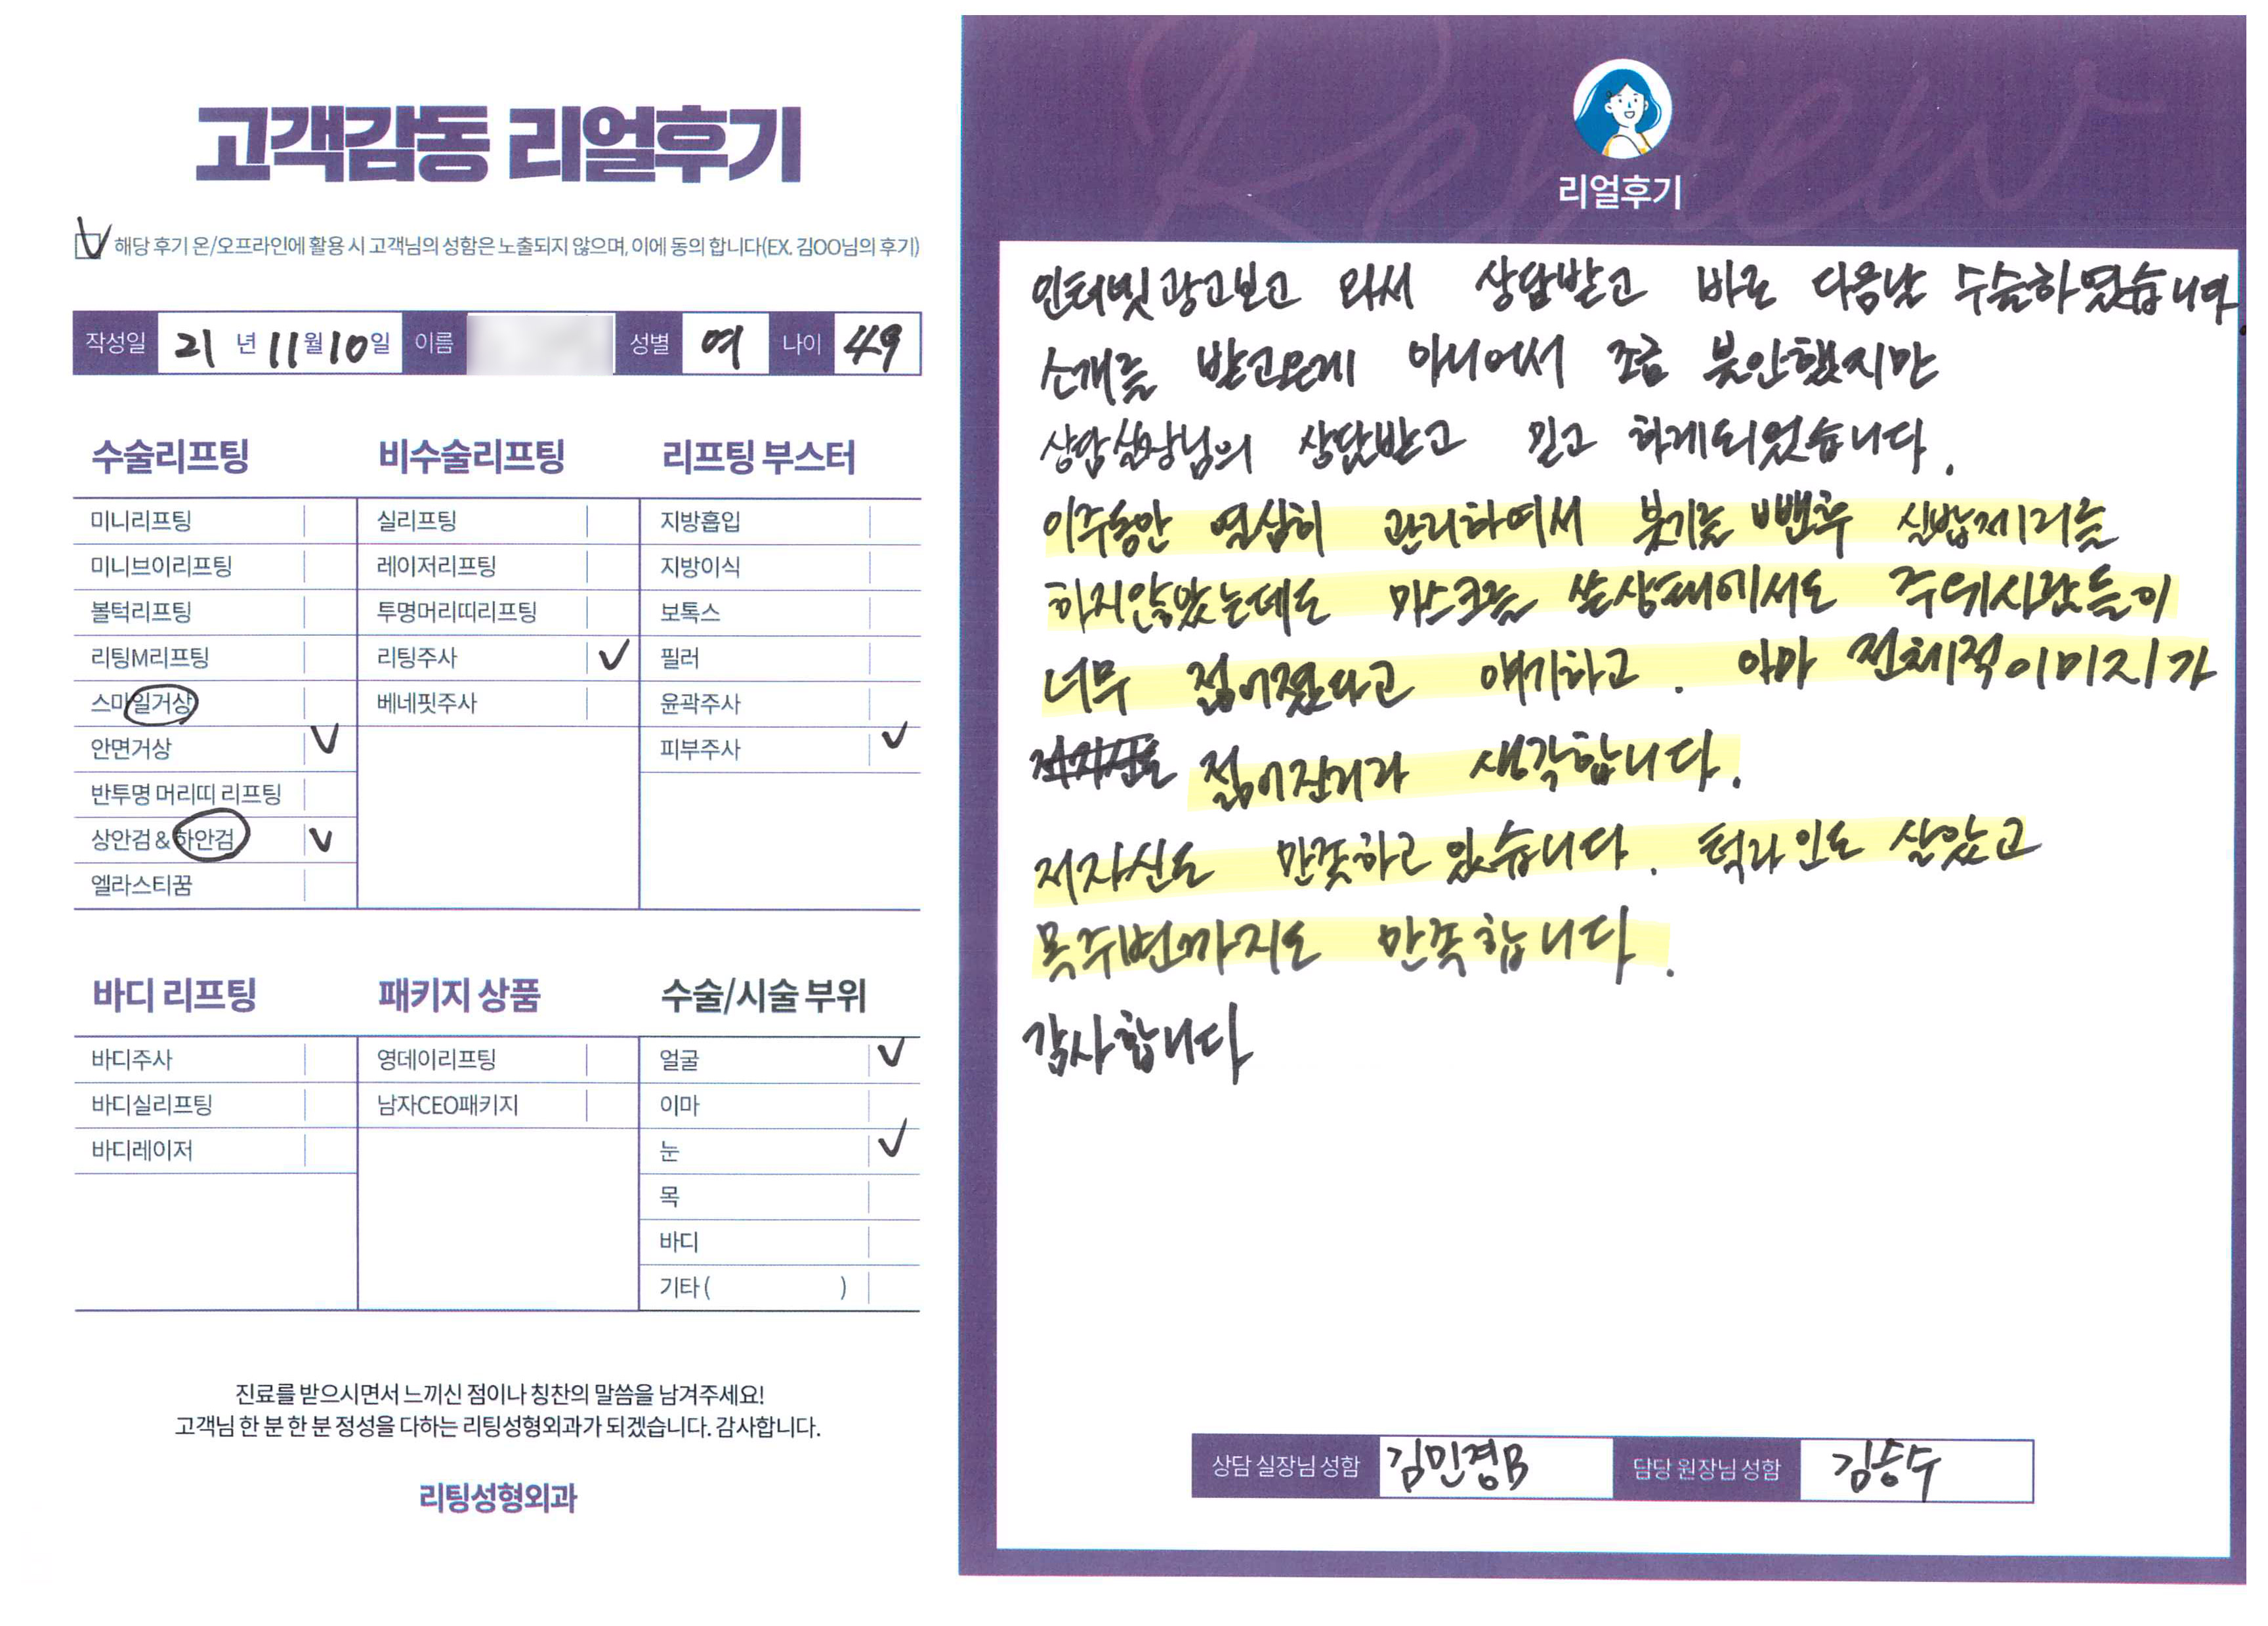 고객감동 리얼후기
해당 후기 온/오프라인에 활용 시 고객님의 성함은 노출되지 않으며, 이에 동의 합니다(EX. 김OO님의 후기)
작성일 21 년 11 월 10 일 이름 성별 여 나이 49
수술리프팅
미니리프팅
미니브이리프팅
볼턱리프팅
리팅M리프팅
스마일거상
안면거상
반투명 머리띠 리프팅
상안검 & 하안검
엘라스티꿈
비수술리프팅
실리프팅
레이저리프팅
투명머리띠리프팅
리팅주사
베네핏주사
리프팅 부스터
지방흡입
지방이식
보톡스
필러
윤곽주사
피부주사
바디 리프팅
바디주사
바디실리프팅
바디레이저
패키지 상품
영데이리프팅
남자CEO패키지
수술/시술 부위
얼굴
이마
눈
목
바디
기타 ( )
진료를 받으시면서 느끼신 점이나 칭찬의 말씀을 남겨주세요!
고객님 한 분 한 분 정성을 다하는 리팅성형외과가 되겠습니다. 감사합니다.
리팅성형외과
Review
리얼후기
인터넷광고보고 와서 상담받고 바로 다음날 수술하였습니다.
소개를 받고온게 아니어서 조금 붓안했지만
상담실장님의 상담받고 믿고 하게되었습니다.
이주동안 열심히 관리하여서 붓기를 뺀후 실밥제거를
하지않았는데도 마스크를 쓴상태에서도 주위사람들이
너무 젊어졌다고 얘기하고. 아마 전체적이미지가
젊어진거라 생각합니다.
저자신도 만족하고 있습니다. 턱라인도 살았고
목주변까지도 만족합니다.
감사합니다
상담 실장님 성함 김민경B 담당 원장님 성함 김승수